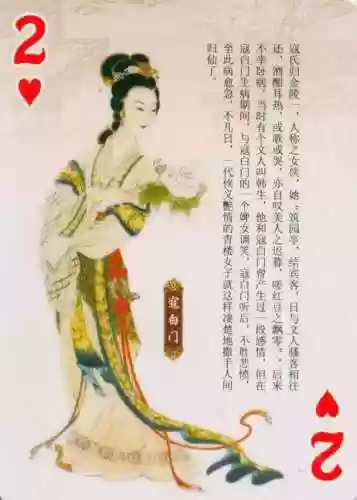 2
寇氏归金陵一，人称之女侠，她：筑园亭，结宾客，日与文人骚客相往
还，酒酣耳热，或歌或哭，亦自叹美人之迟暮，嗟红豆之飘零。。后来
不幸卧病，当时有个文人叫韩生，他和寇白门曾产生过一段感情，但在
寇白门生病期间，与寇白门的一个婢女调笑，寇白门听后，不胜悲愤，
至此病愈急，不几日，一代侠义艳情的青楼女子就这样凄楚地撒手人间
归仙了。
寇白门
2